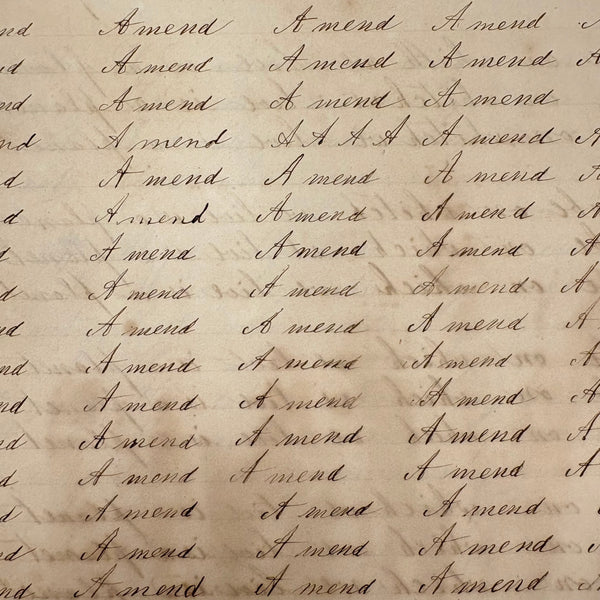 A mend A mend A mend
A mend A mend A mend
A mend A mend A mend
A mend A A A A A mend
A mend A mend A mend
A mend A mend A mend
A mend A mend A mend
A mend A mend A mend
A mend A mend A mend
A mend A mend A mend
A mend A mend A mend
A mend A mend A mend
A mend A mend A mend
A mend A mend A mend
A mend A mend A mend
A mend A mend A mend